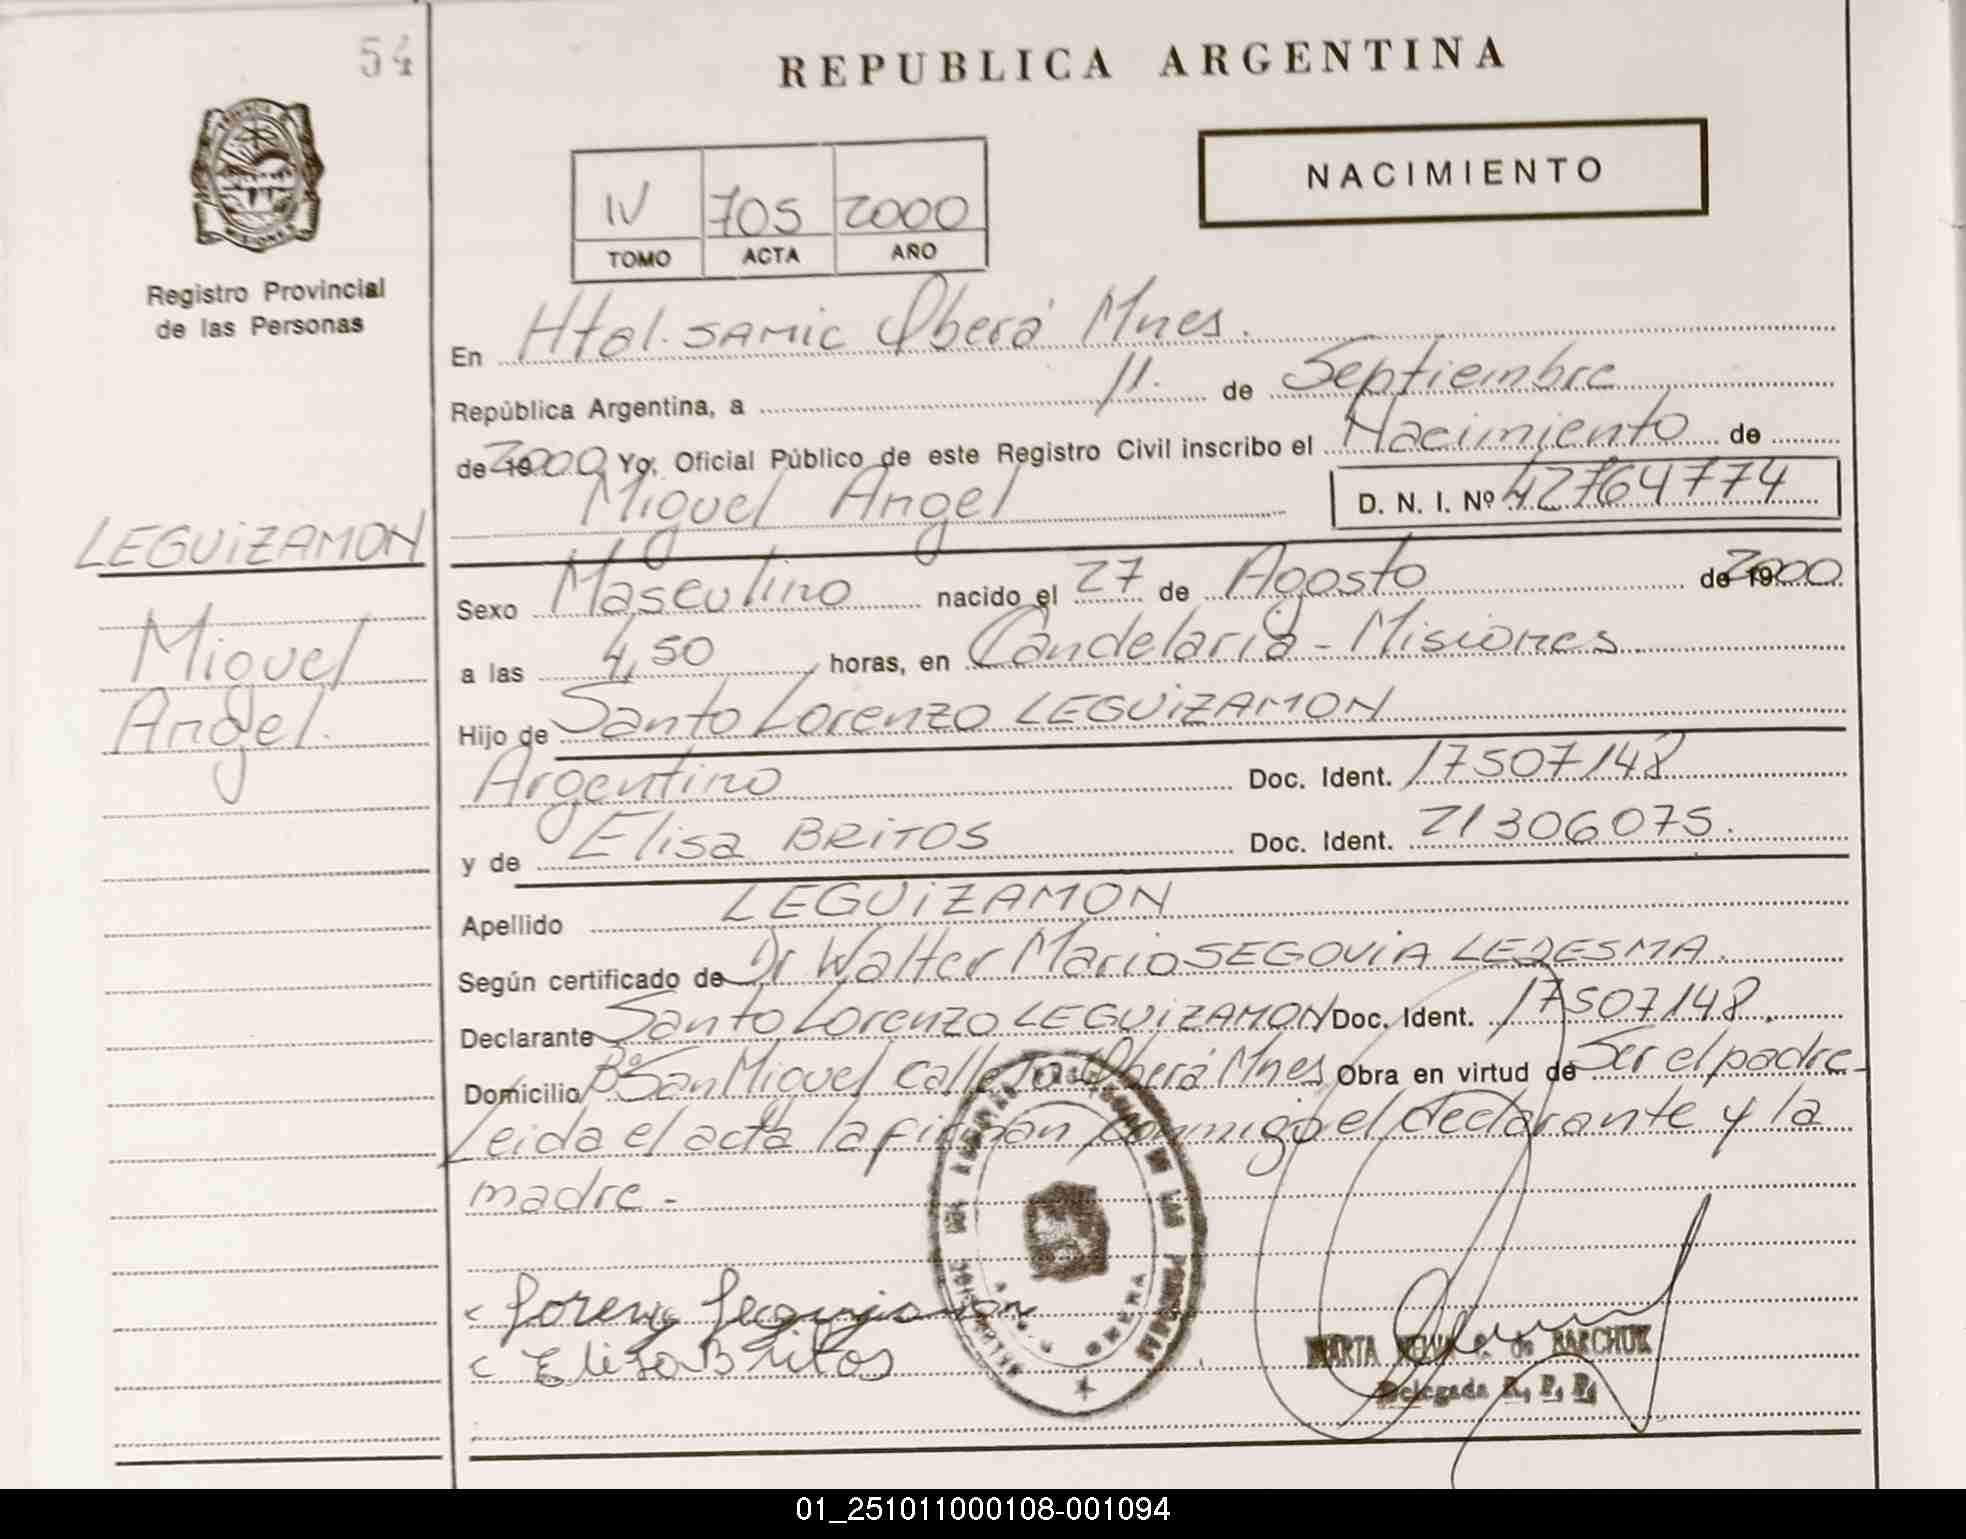 54
REPUBLICA ARGENTINA
NACIMIENTO
IV 705 2000
TOMO ACTA AÑO
Registro Provincial
de las Personas
En Htal. SAMIC Oberá Mnes.
República Argentina, a 11. de Septiembre
de 2000 Yo, Oficial Público de este Registro Civil inscribo el Nacimiento de
Miguel Angel D. N. I. Nº 42764774
LEGUIZAMON
Miguel
Angel.
Sexo Masculino nacido el 27 de Agosto de 2000
a las 4,50 horas, en Candelaria - Misiones
Hijo de Santo Lorenzo LEGUIZAMON
Argentino Doc. Ident. 17507148
y de Elisa BRITOS Doc. Ident. 21306075.
Apellido LEGUIZAMON
Según certificado de Dr Walter Mario SEGOVIA LEDESMA.
Declarante Santo Lorenzo LEGUIZAMON Doc. Ident. 17507148.
Domicilio Bº San Miguel calle Oberá Mnes Obra en virtud de Ser el padre
Leida el acta la firman conmigo el declarante y la
madre -
Lorenzo Leguizamon
Elisa Britos
MARTA de BARCHUK
Delegada R. P. P.
OBERA
01_251011000108-001094